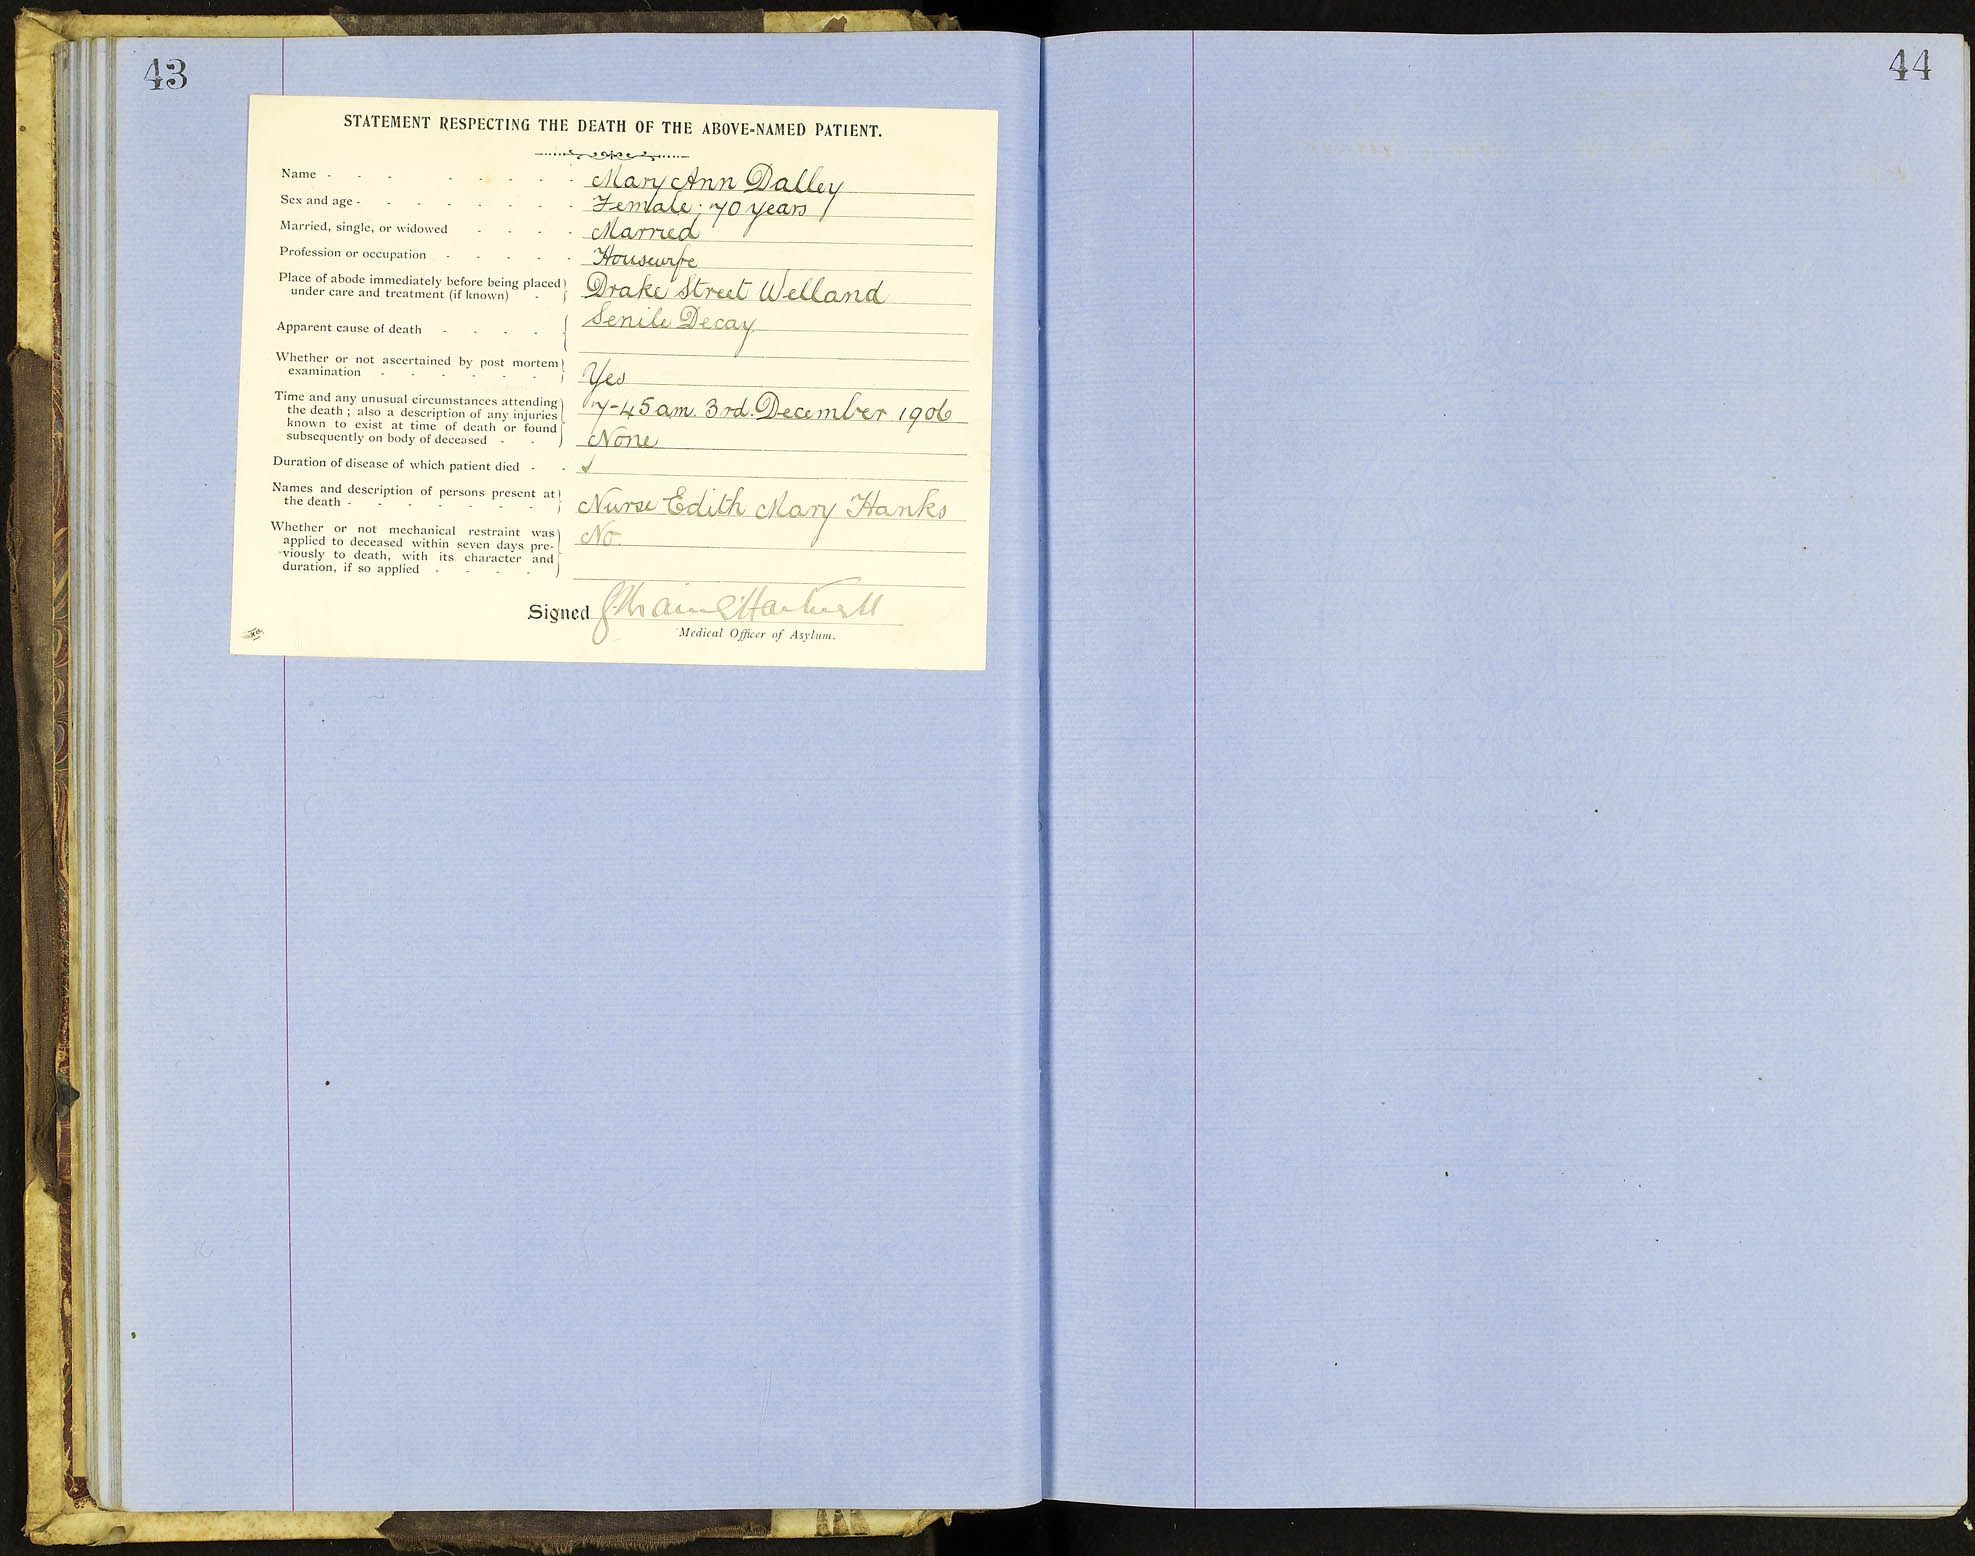 43
44
STATEMENT RESPECTING THE DEATH OF THE ABOVE-NAMED PATIENT.
Name - - - - - - - - Mary Ann Dalley
Sex and age - - - - - - - - Female; 70 years
Married, single, or widowed - - - - Married
Profession or occupation - - - - - Housewife
Place of abode immediately before being placed
under care and treatment (if known) - Drake Street Welland
Apparent cause of death - - - - Senile Decay
Whether or not ascertained by post mortem
examination - - - - - - Yes
Time and any unusual circumstances attending
the death; also a description of any injuries
known to exist at time of death or found
subsequently on body of deceased - -
7-45 am. 3rd. December 1906
None
Duration of disease of which patient died - -
Names and description of persons present at
the death - - - - - - - Nurse Edith Mary Hanks
Whether or not mechanical restraint was
applied to deceased within seven days pre-
viously to death, with its character and
duration, if so applied - - - -
No.
Signed
Medical Officer of Asylum.